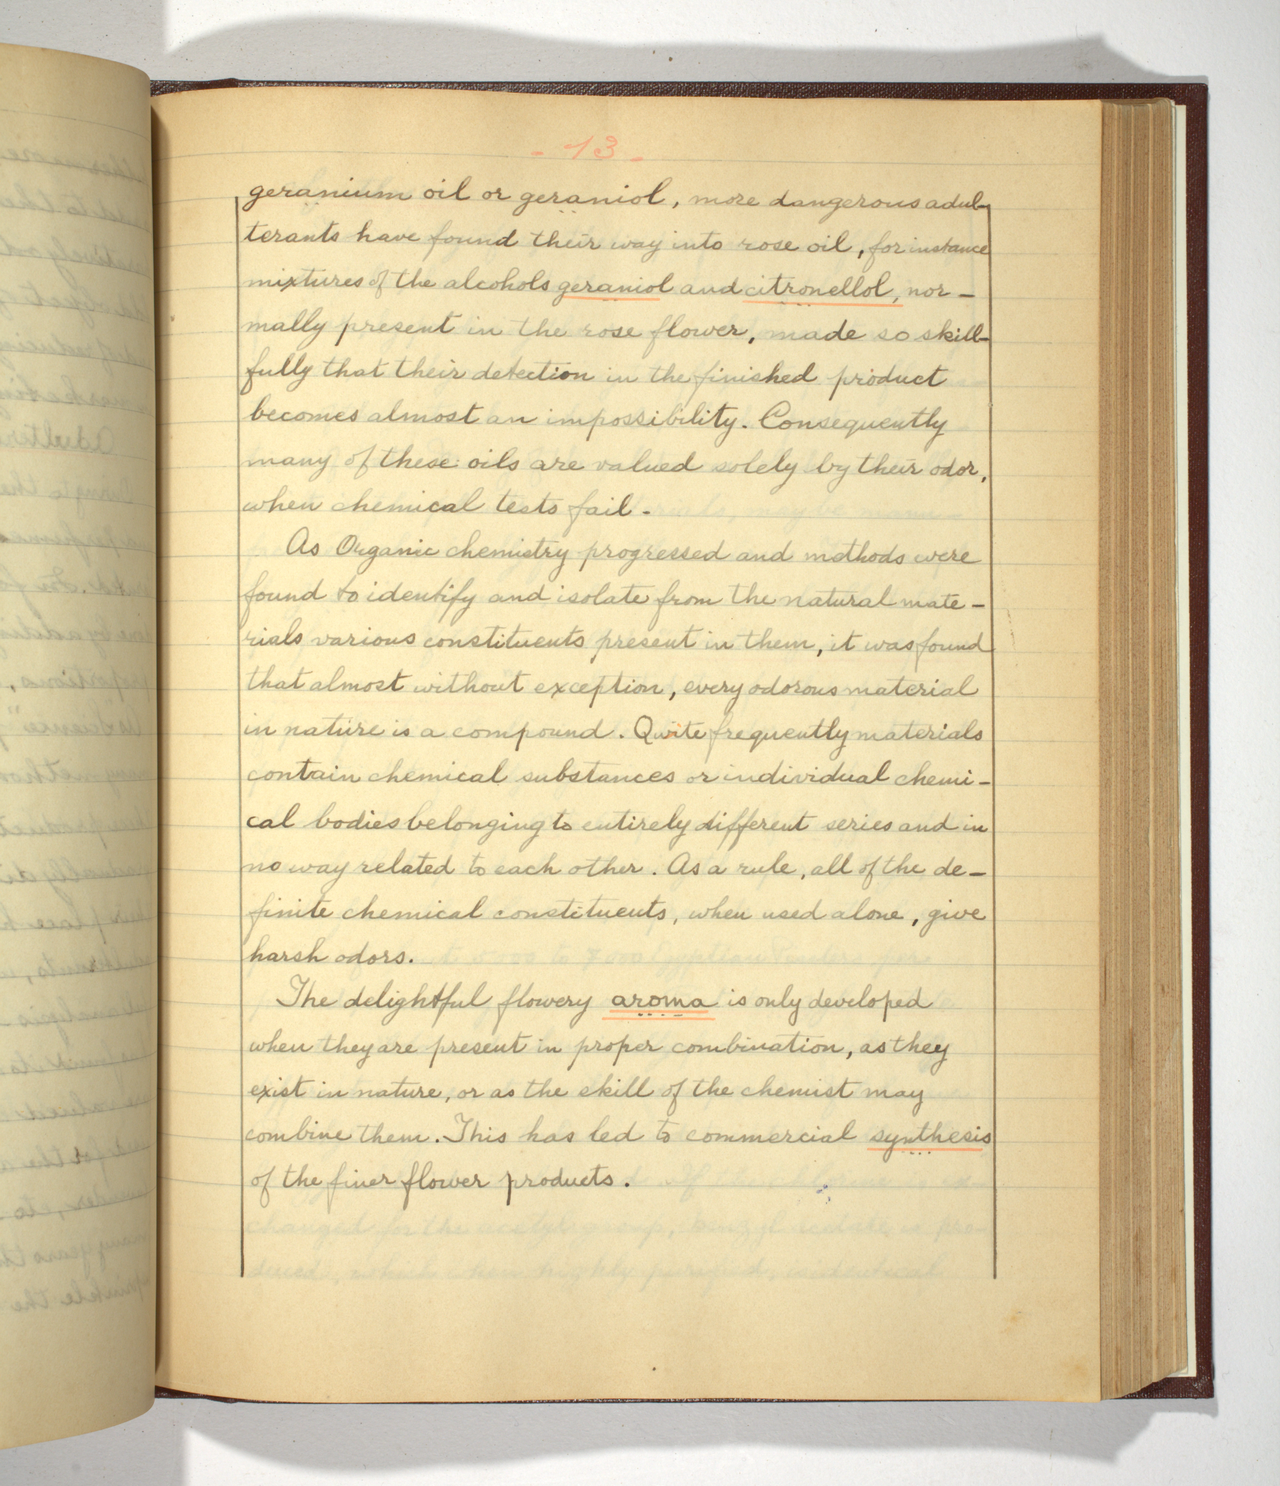 - 13 -
geranium oil or geraniol, more dangerous adul-
terants have found their way into rose oil, for instance
mixtures of the alcohols geraniol and citronellol, nor-
mally present in the rose flower, made so skill-
fully that their detection in the finished product
becomes almost an impossibility. Consequently
many of these oils are valued solely by their odor,
when chemical tests fail.
As Organic chemistry progressed and methods were
found to identify and isolate from the natural mate-
rials various constituents present in them, it was found
that almost without exception, every odorous material
in nature is a compound. Quite frequently materials
contain chemical substances or individual chemi-
cal bodies belonging to entirely different series and in
no way related to each other. As a rule, all of the de-
finite chemical constituents, when used alone, give
harsh odors.
The delightful flowery aroma is only developed
when they are present in proper combination, as they
exist in nature, or as the skill of the chemist may
combine them. This has led to commercial synthesis
of the finer flower products.